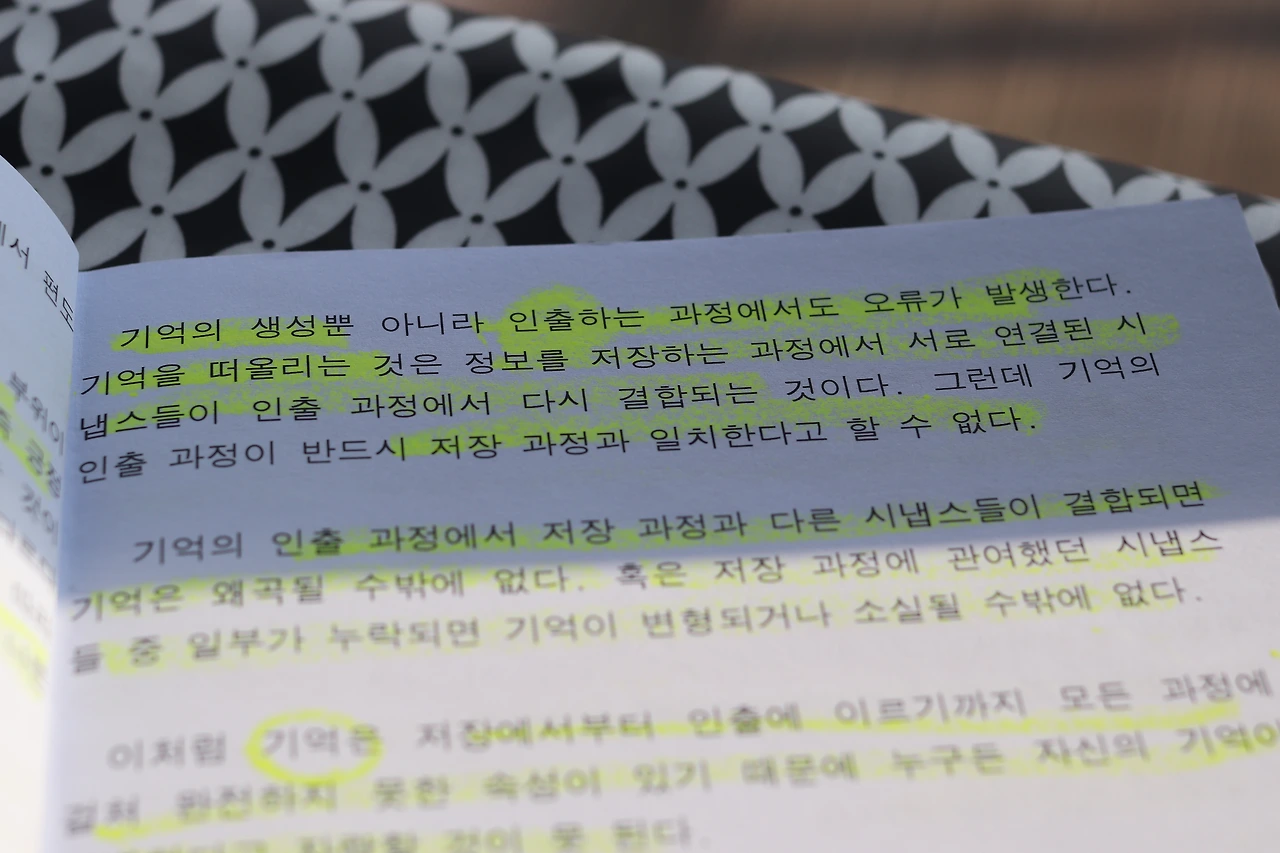 에서 편도
부위이
긍정
것이
기억의 생성뿐 아니라 인출하는 과정에서도 오류가 발생한다.
기억을 떠올리는 것은 정보를 저장하는 과정에서 서로 연결된 시
냅스들이 인출 과정에서 다시 결합되는 것이다. 그런데 기억의
인출 과정이 반드시 저장 과정과 일치한다고 할 수 없다.
기억의 인출 과정에서 저장 과정과 다른 시냅스들이 결합되면
기억은 왜곡될 수밖에 없다. 혹은 저장 과정에 관여했던 시냅스
들 중 일부가 누락되면 기억이 변형되거나 소실될 수밖에 없다.
이처럼 기억은 저장에서부터 인출에 이르기까지 모든 과정에
걸쳐 완전하지 못한 속성이 있기 때문에 누구든 자신의 기억이
것이 못 된다.